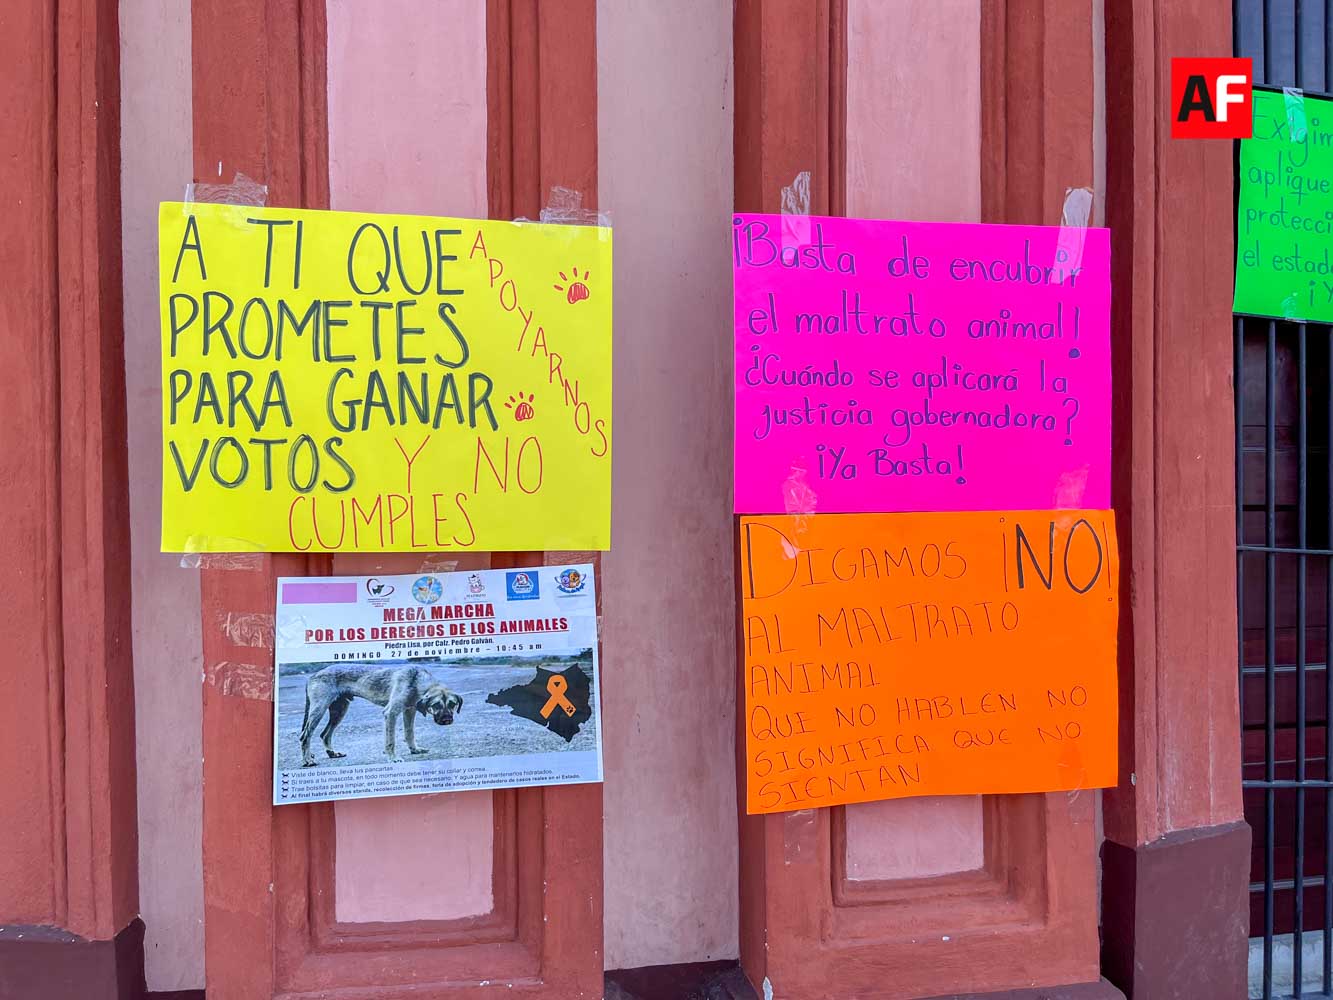 A TI QUE
PROMETES
PARA GANAR
VOTOS Y NO
CUMPLES
APOYARNOS
MEGA MARCHA
POR LOS DERECHOS DE LOS ANIMALES
Piedra Lisa, por Calz. Pedro Galván.
DOMINGO 27 de noviembre – 10:45 am
Viste de blanco, lleva tus pancartas
Si traes a tu mascota, en todo momento debe tener su collar y correa.
Trae bolsitas para limpiar, en caso de que sea necesario. Y agua para mantenerlos hidratados.
Al final habrá diversos stands, recolección de firmas, feria de adopción y tendedero de casos reales en el Estado.
¡Basta de encubrir
el maltrato animal!
¿Cuándo se aplicará la
justicia gobernadora?
¡Ya Basta!
DIGAMOS ¡NO!
AL MALTRATO
ANIMAL
QUE NO HABLEN NO
SIGNIFICA QUE NO
SIENTAN
AF
Exigim
aplique
protecci
el estad
¡Y